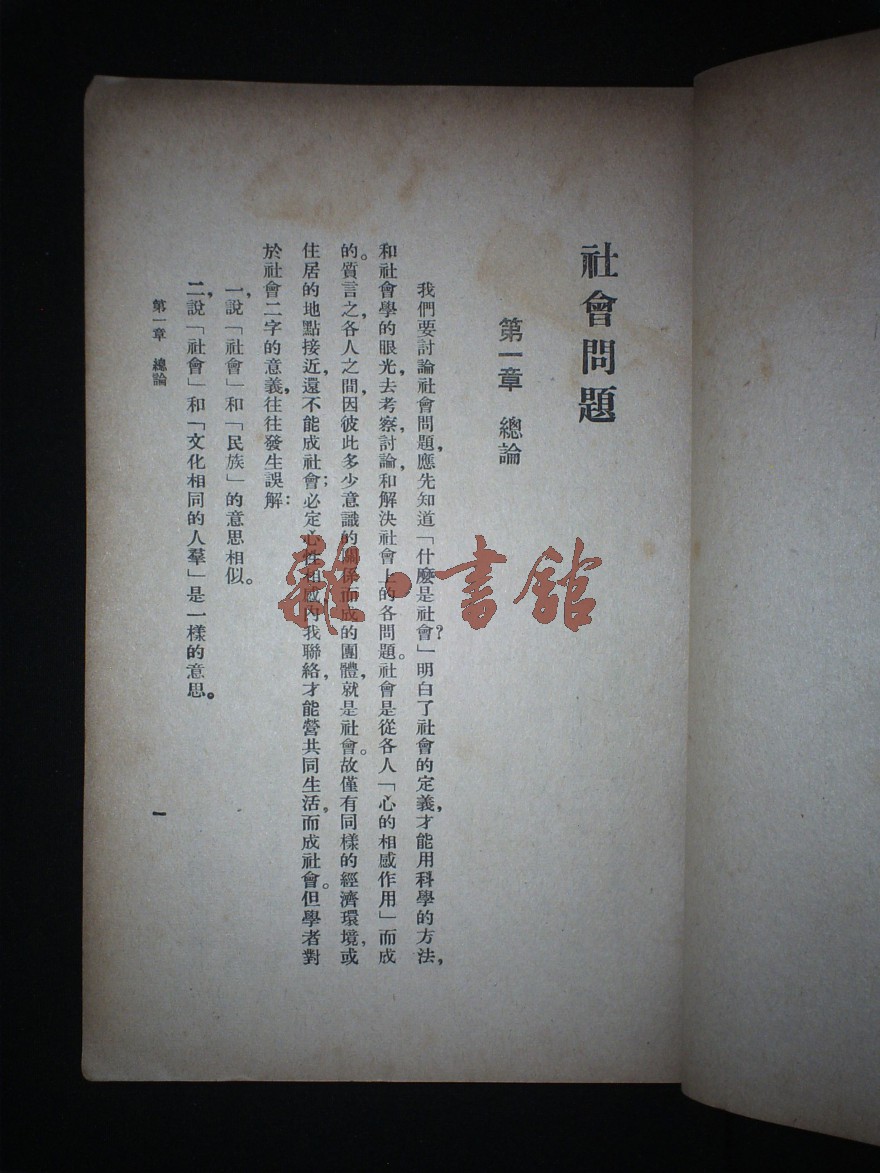 社會問題
第一章　總論
我們要討論社會問題，應先知道「什麼是社會？」明白了社會的定義，才能用科學的方法，
和社會學的眼光，去考察，討論，和解決社會上的各問題。社會是從各人「心的相感作用」而成
的。質言之，各人之間，因彼此多少意識的關係而成的團體，就是社會。故僅有同樣的經濟環境，或
住居的地點接近，還不能成社會；必定心性相感，內我聯絡，才能營共同生活，而成社會。但學者對
於社會二字的意義，往往發生誤解：
一，說「社會」和「民族」的意思相似。
二，說「社會」和「文化相同的人羣」是一樣的意思。
第一章　總論
一
雜·書館